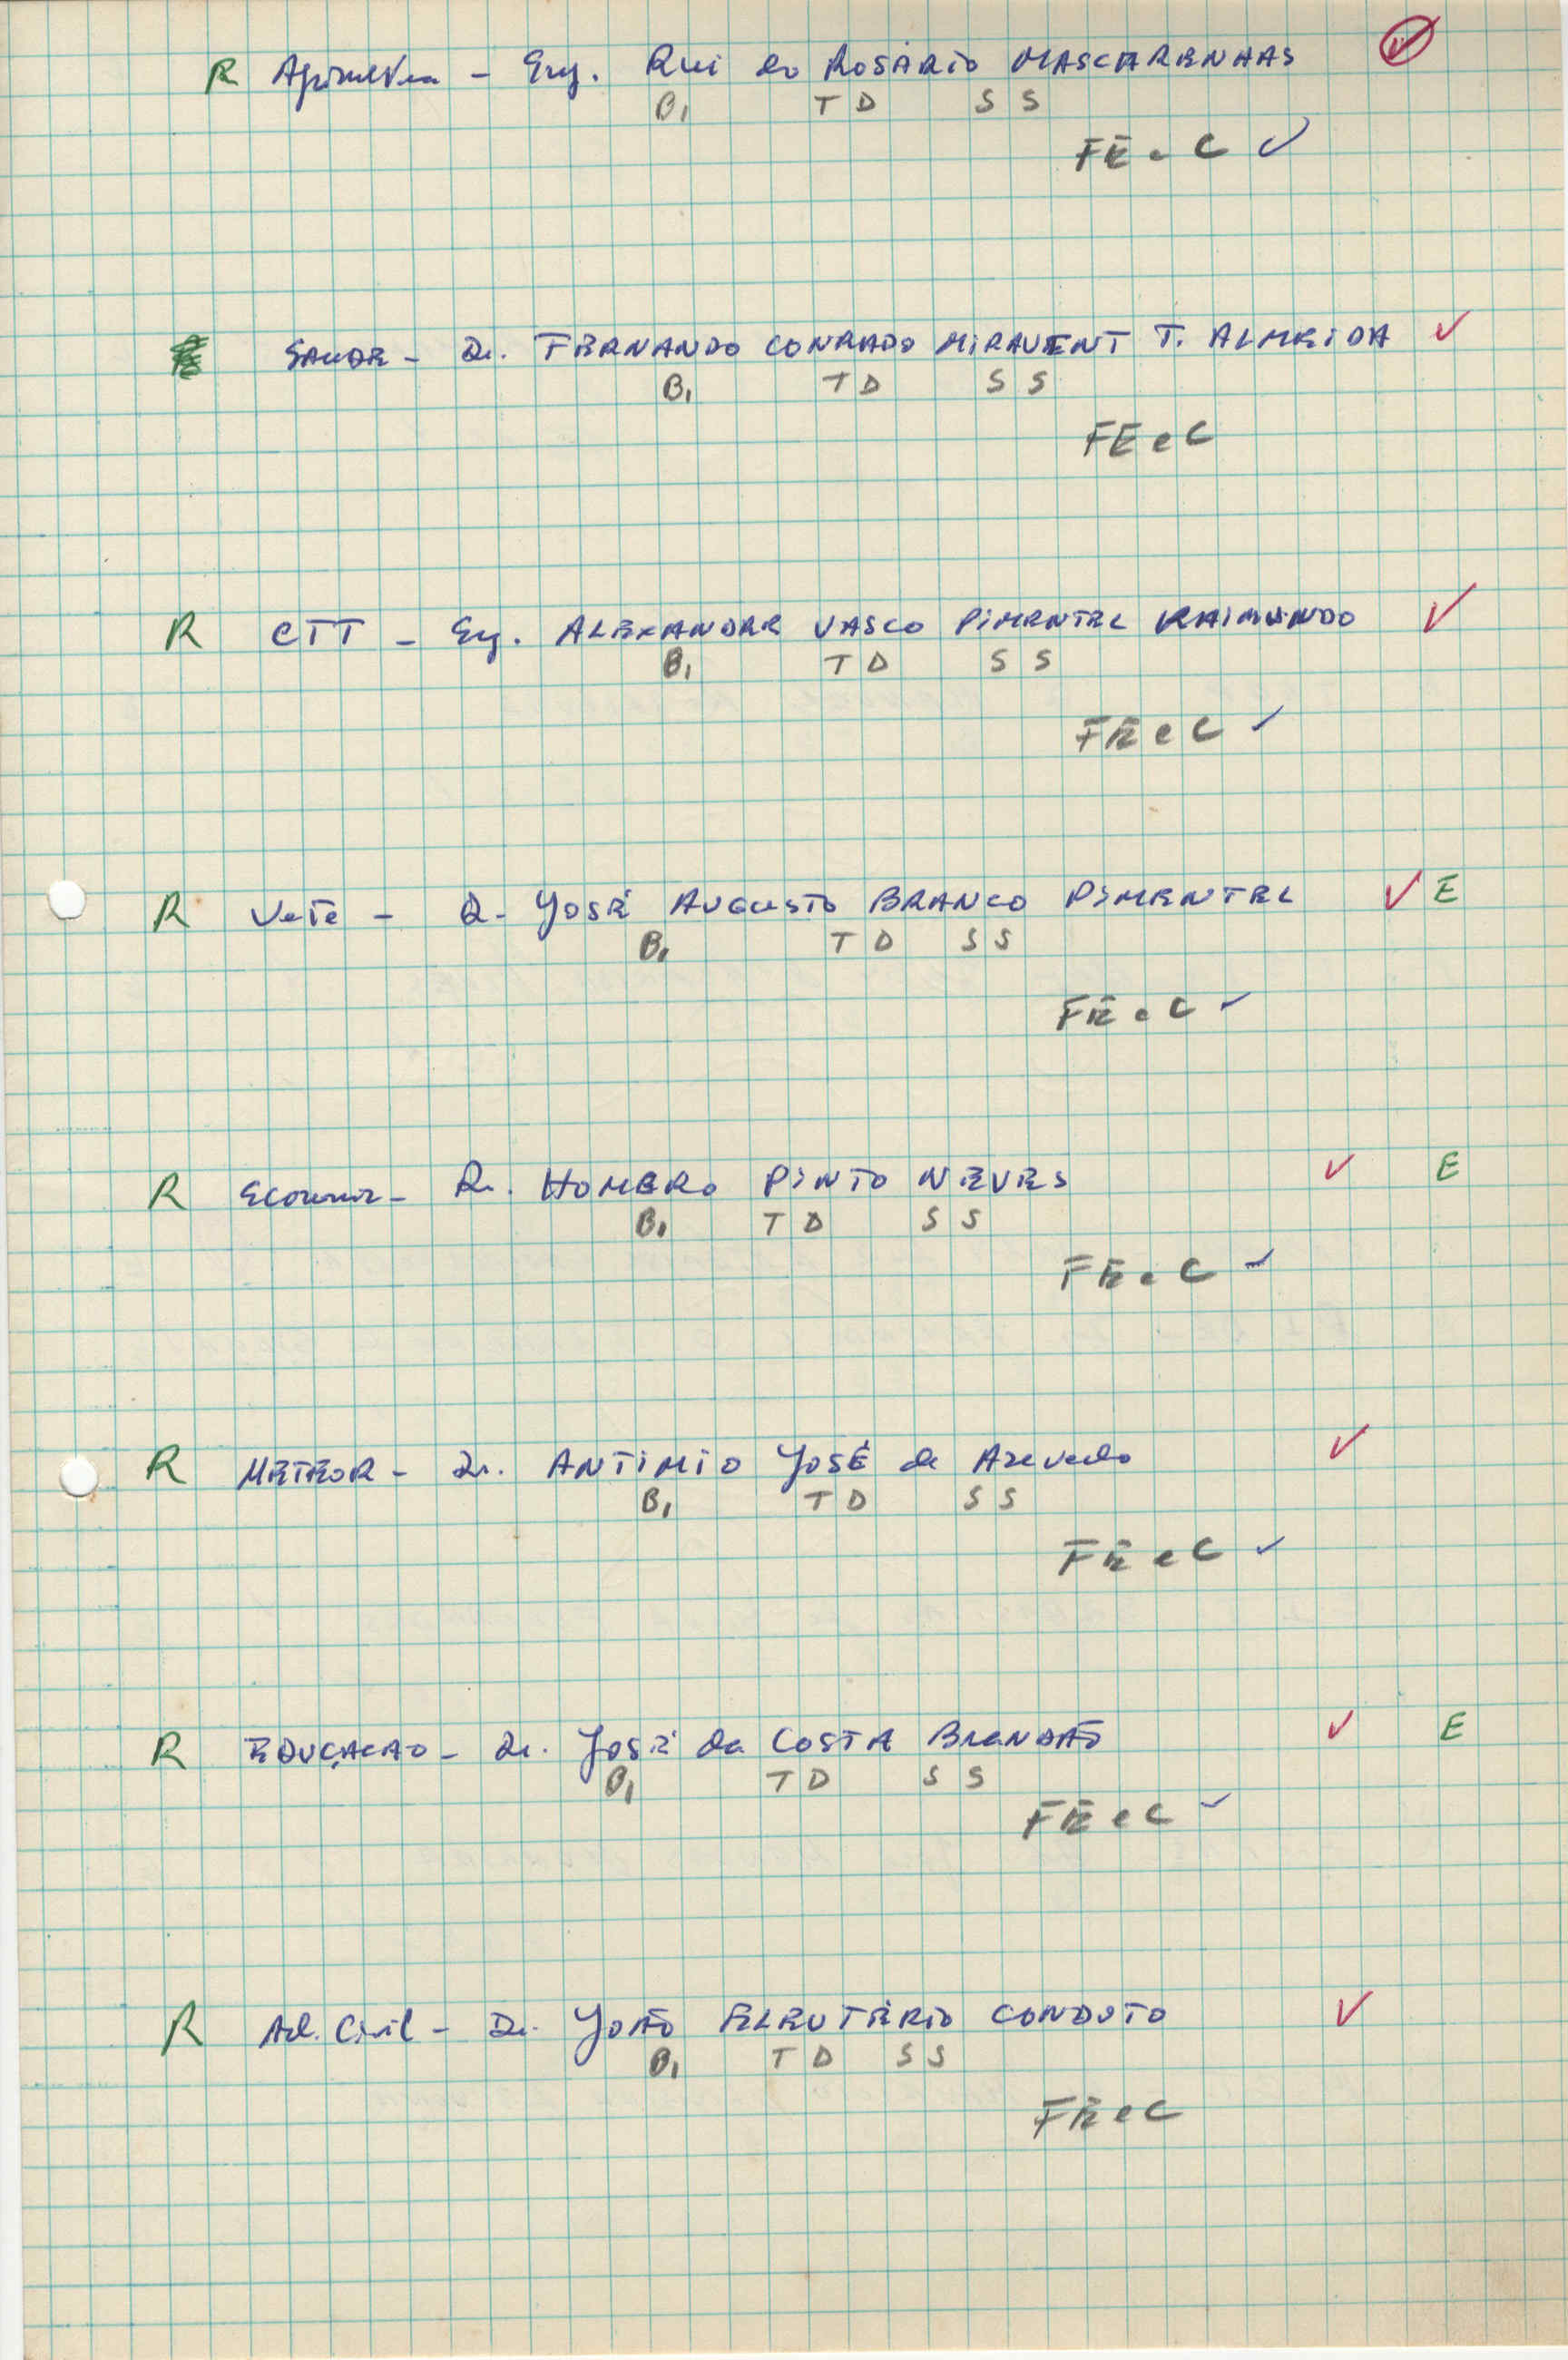 R Agricultura - Eng. Rui do ROSÁRIO MASCARENHAS ✓
B1 T D S S
FE e C ✓
SAUDE - Dr. FERNANDO CONRADO MIRAVENT T. ALMEIDA ✓
B1 T D S S
FE e C
R CTT - Eng. ALEXANDRE VASCO PIMENTEL RAIMUNDO ✓
B1 T D S S
FE e C ✓
R Vete - Dr. JOSÉ AUGUSTO BRANCO PIMENTEL ✓ E
B1 T D S S
FE e C ✓
R Economia - Dr. HOMERO PINTO NEVES ✓ E
B1 T D S S
FE e C ✓
R METEOR - Dr. ANTIMIO JOSÉ de Azevedo ✓
B1 T D S S
FE e C ✓
R EDUCAÇAO - Dr. JOSÉ da COSTA BRANDÃO ✓ E
B1 T D S S
FE e C ✓
R Ad. Civil - Dr. JOÃO ELEUTÉRIO CONDUTO ✓
B1 T D S S
FE e C